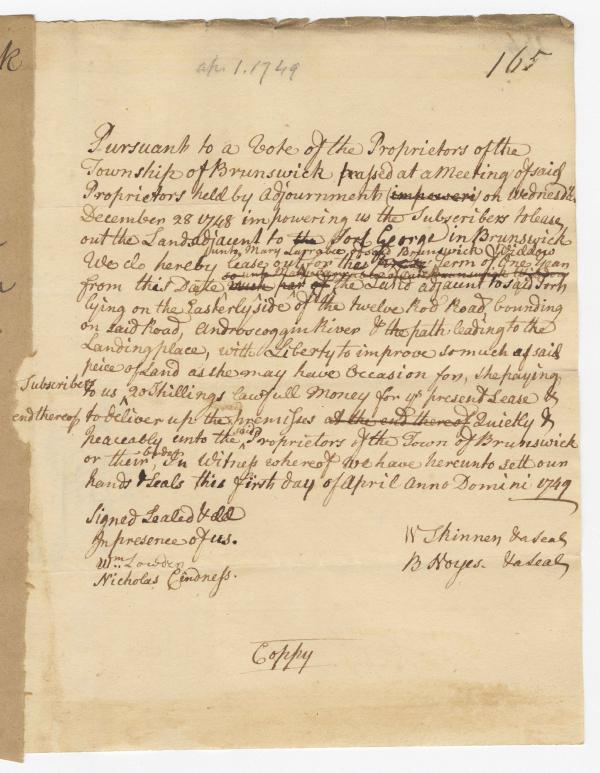 ap. 1. 1749
165
Pursuant to a Vote of the Proprietors of the
Township of Brunswick passed at a Meeting of said
Proprietors held by Adjournment (impowering) on Wednesd.
December 28 1748 impowering us the Subscribers to lease
out the Lands adjacent to the Fort George in Brunswick
unto Mary Larrabee of sd Brunswick Widdow
We do hereby lease out for the Term of One Year
from this Date the Land adjacent to said Fort
lying on the Easterly side of the twelve Rod Road, bounding
on said Road, Androscoggin River & the path leading to the
Landing place, with Liberty to improve so much of said
peice of Land as she may have Occasion for, she paying
Subscribers
to us 20 Shillings lawfull Money for ye present Lease &
end thereof to deliver up the premisses at the end thereof Quietly &
said
peaceably unto the Proprietors of the Town of Brunswick
order
or their In Witness whereof we have hereunto sett our
hands & Seals this first day of April Anno Domini 1749
Signed Sealed & dd
In presence of us.
W Skinner & a Seal
Wm. Lowden
B Noyes. & a Seal
Nicholas Cindness.
Coppy